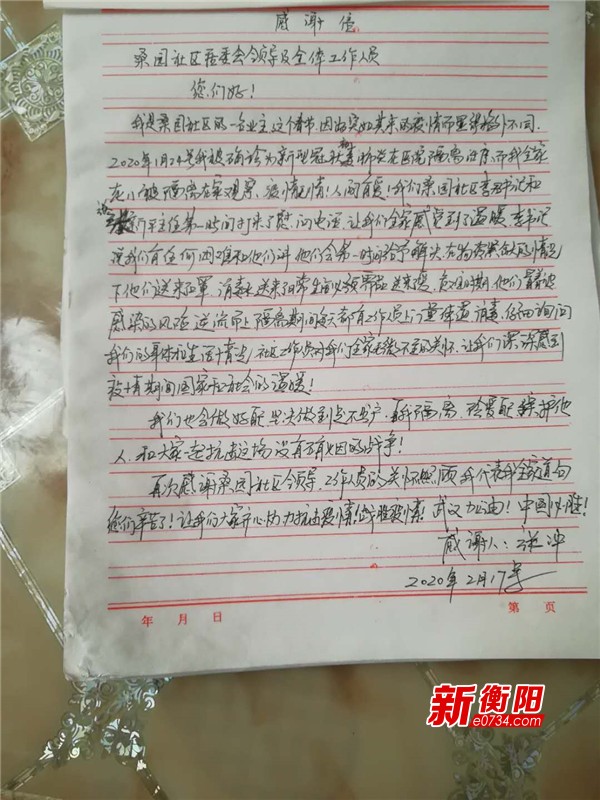 感谢信
桑园社区居委会领导及全体工作人员
您们好!
我是桑园社区的一名业主这个春节,因为突如其来的疫情而显得格外不同.
2020年1月24号我被确诊为新型冠状病毒 区医院隔离治疗.而我全家
老小被隔离在家观察.疫情无情!人间有爱!我们桑园社区李书记和
主任第一时间打来了慰问电话,让我们全家感觉到了温暖,李书记
说我们有任何困难和他们讲 他们会第一时间给予解决.在物资紧缺的情况
下他们送来口罩,消毒水送来日常生活必须果品 送来 .危难时期.他们冒着被
感染的风险逆流而上 隔离期间每天都有工作人员上门量体温,消毒,仔细询问
我们的身体和生活情况,社区工作人员对我们全家无微不至的关怀,让我们深深感到
疫情期间国家和社会的温暖!
我们也会做好配 坚决做到足不出户. 隔离,珍爱 保护他
人,和大家一起抗击这场没有硝烟的战争!
再次感谢桑园社区领导.工作人员的关怀照顾 我代表我全家道句
您们辛苦了!让我们大家齐心协力抗击疫情!战胜疫情!武汉加油!中国必胜!
感谢人:张冲
2020年2月17号
年 月 日 第 页
新衡阳
e0734.com